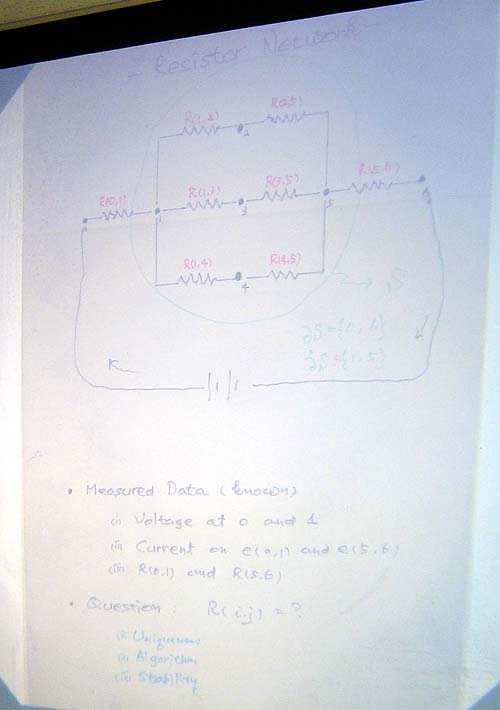 - Resistor Network -
R(1,2) R(2,5)
2
R(0,1) R(1,3) R(3,5) R(5,6)
1 3 5 6
R(1,4) R(4,5)
4
→ S
∂S = {0, 6}
K
• Measured Data (known)
(i) Voltage at 0 and 1
(ii) Current on e(0,1) and e(5,6)
(iii) R(0,1) and R(5,6)
• Question : R(i,j) = ?
(i) Uniqueness
(ii) Algorithm
(iii) Stability